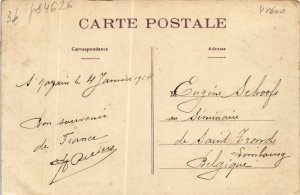 CARTE POSTALE
Correspondance
Adresse
le 4 Janvier 1914
Bon souvenir
de France
Eugène Schoofs
au Séminaire
de Saint Trond
Limbourg
Belgique